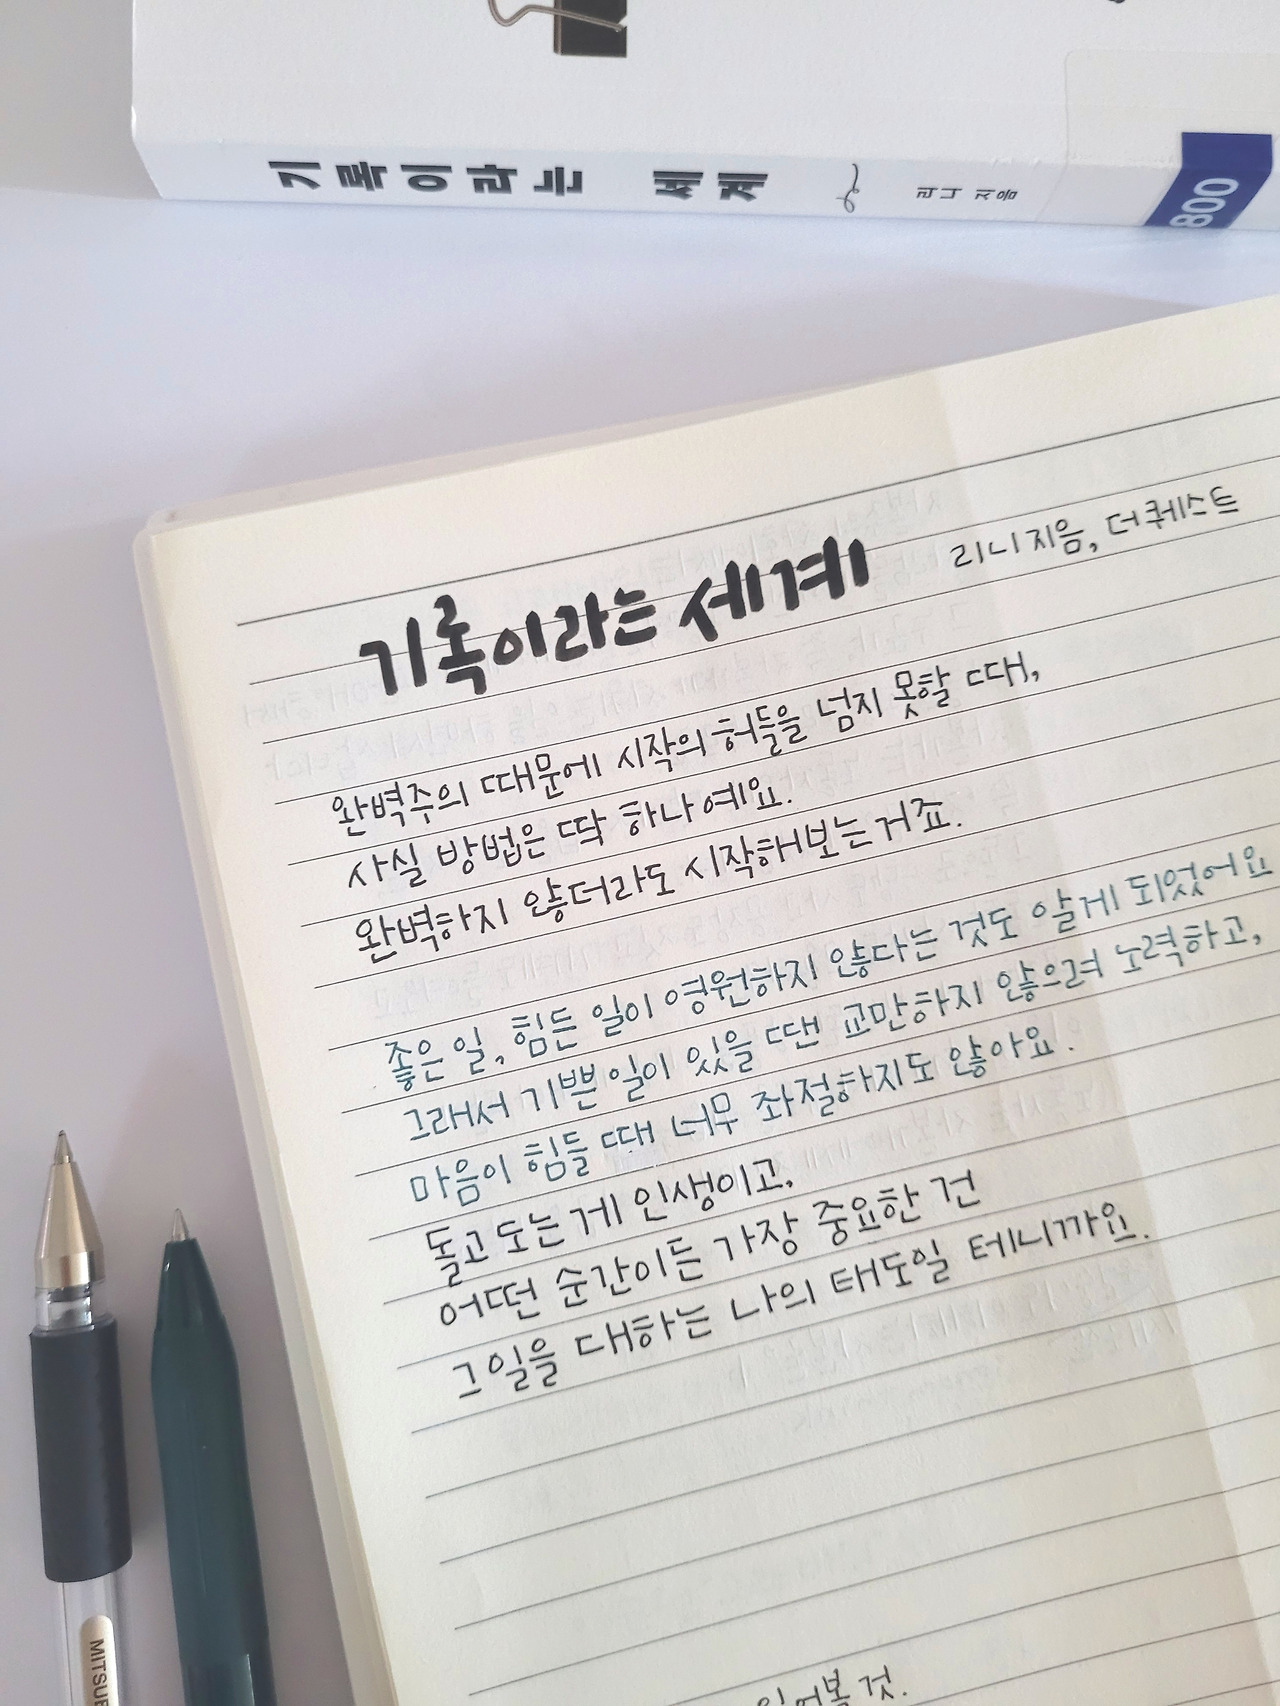 기록이라는 세계
리니 지음
800
기록이라는 세계 리니 지음, 더퀘스트
완벽주의 때문에 시작의 허들을 넘지 못할 때,
사실 방법은 딱 하나예요.
완벽하지 않더라도 시작해보는 거죠.
좋은 일, 힘든 일이 영원하지 않다는 것도 알게 되었어요
그래서 기쁜 일이 있을 땐 교만하지 않으려 노력하고,
마음이 힘들 때 너무 좌절하지도 않아요.
돌고 도는 게 인생이고,
어떤 순간이든 가장 중요한 건
그 일을 대하는 나의 태도일 테니까요.
것.
MITSUB